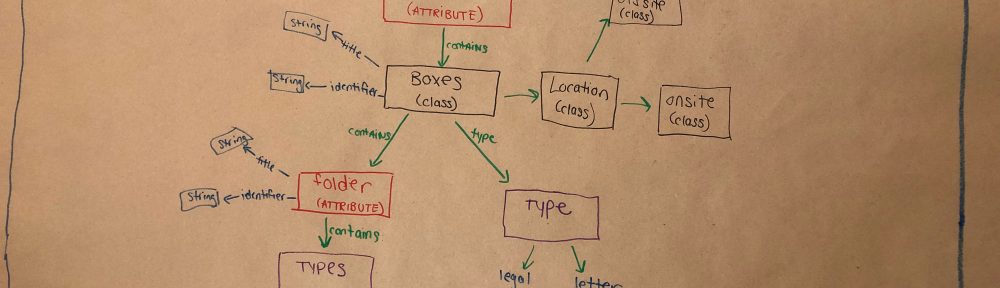 (ATTRIBUTE)
(class)
String
title
contains
String
identifier
Boxes
(class)
Location
(class)
onsite
(class)
contains
type
String
title
String
identifier
folder
(ATTRIBUTE)
TYPE
contains
TYPES
legal
letter